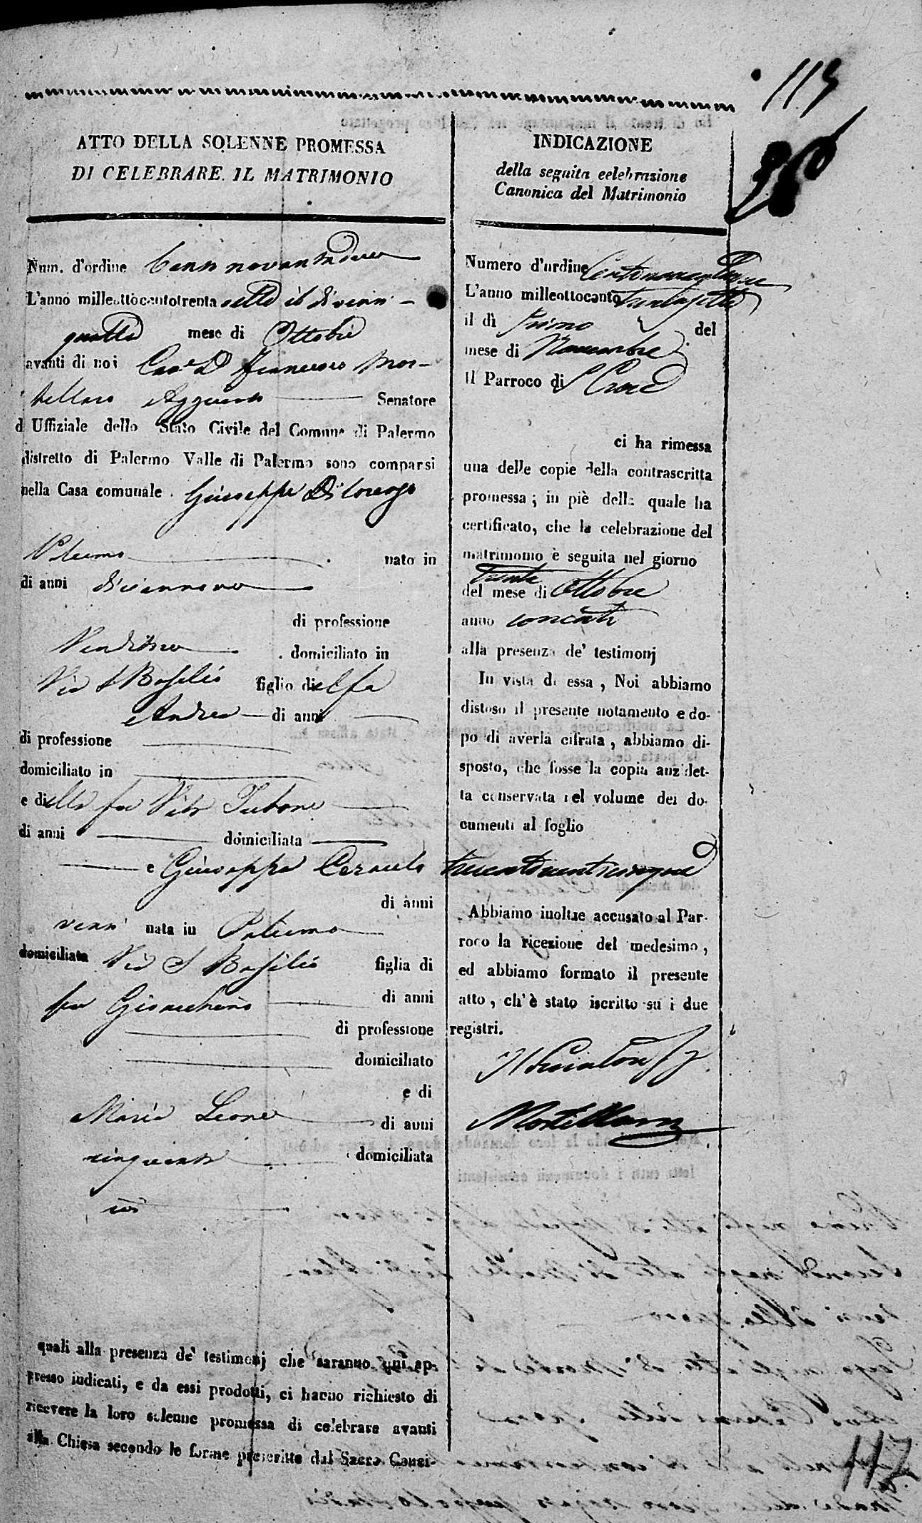 113
ATTO DELLA SOLENNE PROMESSA
DI CELEBRARE IL MATRIMONIO
Num. d'ordine Cento novantadue
L'anno milleottocentotrenta sette il di venti
quattro mese di Ottobre
avanti di noi Cav. D. Francesco Mor-
tellaro Aggiunto Senatore
d Uffiziale dello Stato Civile del Comune di Palermo
distretto di Palermo Valle di Palermo sono comparsi
nella Casa comunale Giuseppe Di Lorenzo
Palermo nato in
di anni diciannove
di professione
domiciliato in
Via S Basilio figlio di
Andrea di anni
di professione
domiciliato in
e di fu Vita
di anni domiciliata
e Giuseppa
di anni
venti nata in Palermo
domiciliata Via S Basilio figlia di
fu Gioacchino di anni
di professione
domiciliato
e di
Maria Leone di anni
cinquanta domiciliata
ivi
quali alla presenza de' testimonj che saranno qui ap-
presso indicati, e da essi prodotti, ci hanno richiesto di
ricevere la loro solenne promessa di celebrare avanti
alla Chiesa secondo le forme prescritte dal Sacro Conci-
INDICAZIONE
della seguita celebrazione
Canonica del Matrimonio
Numero d'ordine Centonovantadue
L'anno milleottocento trentasette
il dì primo del
mese di Novembre
Il Parroco di S Croce
ci ha rimessa
una delle copie della contrascritta
promessa; in piè della quale ha
certificato, che la celebrazione del
matrimonio è seguita nel giorno
trenta
del mese di Ottobre
anno corrente
alla presenza de' testimonj
In vista di essa, Noi abbiamo
disteso il presente notamento e do-
po di averla cifrata, abbiamo di-
sposto, che fosse la copia anzidet-
ta conservata nel volume dei do-
cumenti al foglio
trecentoventicinque
Abbiamo inoltre accusato al Par-
roco la ricezione del medesimo,
ed abbiamo formato il presente
atto, ch'è stato iscritto su i due
registri.
Mortillaro
117